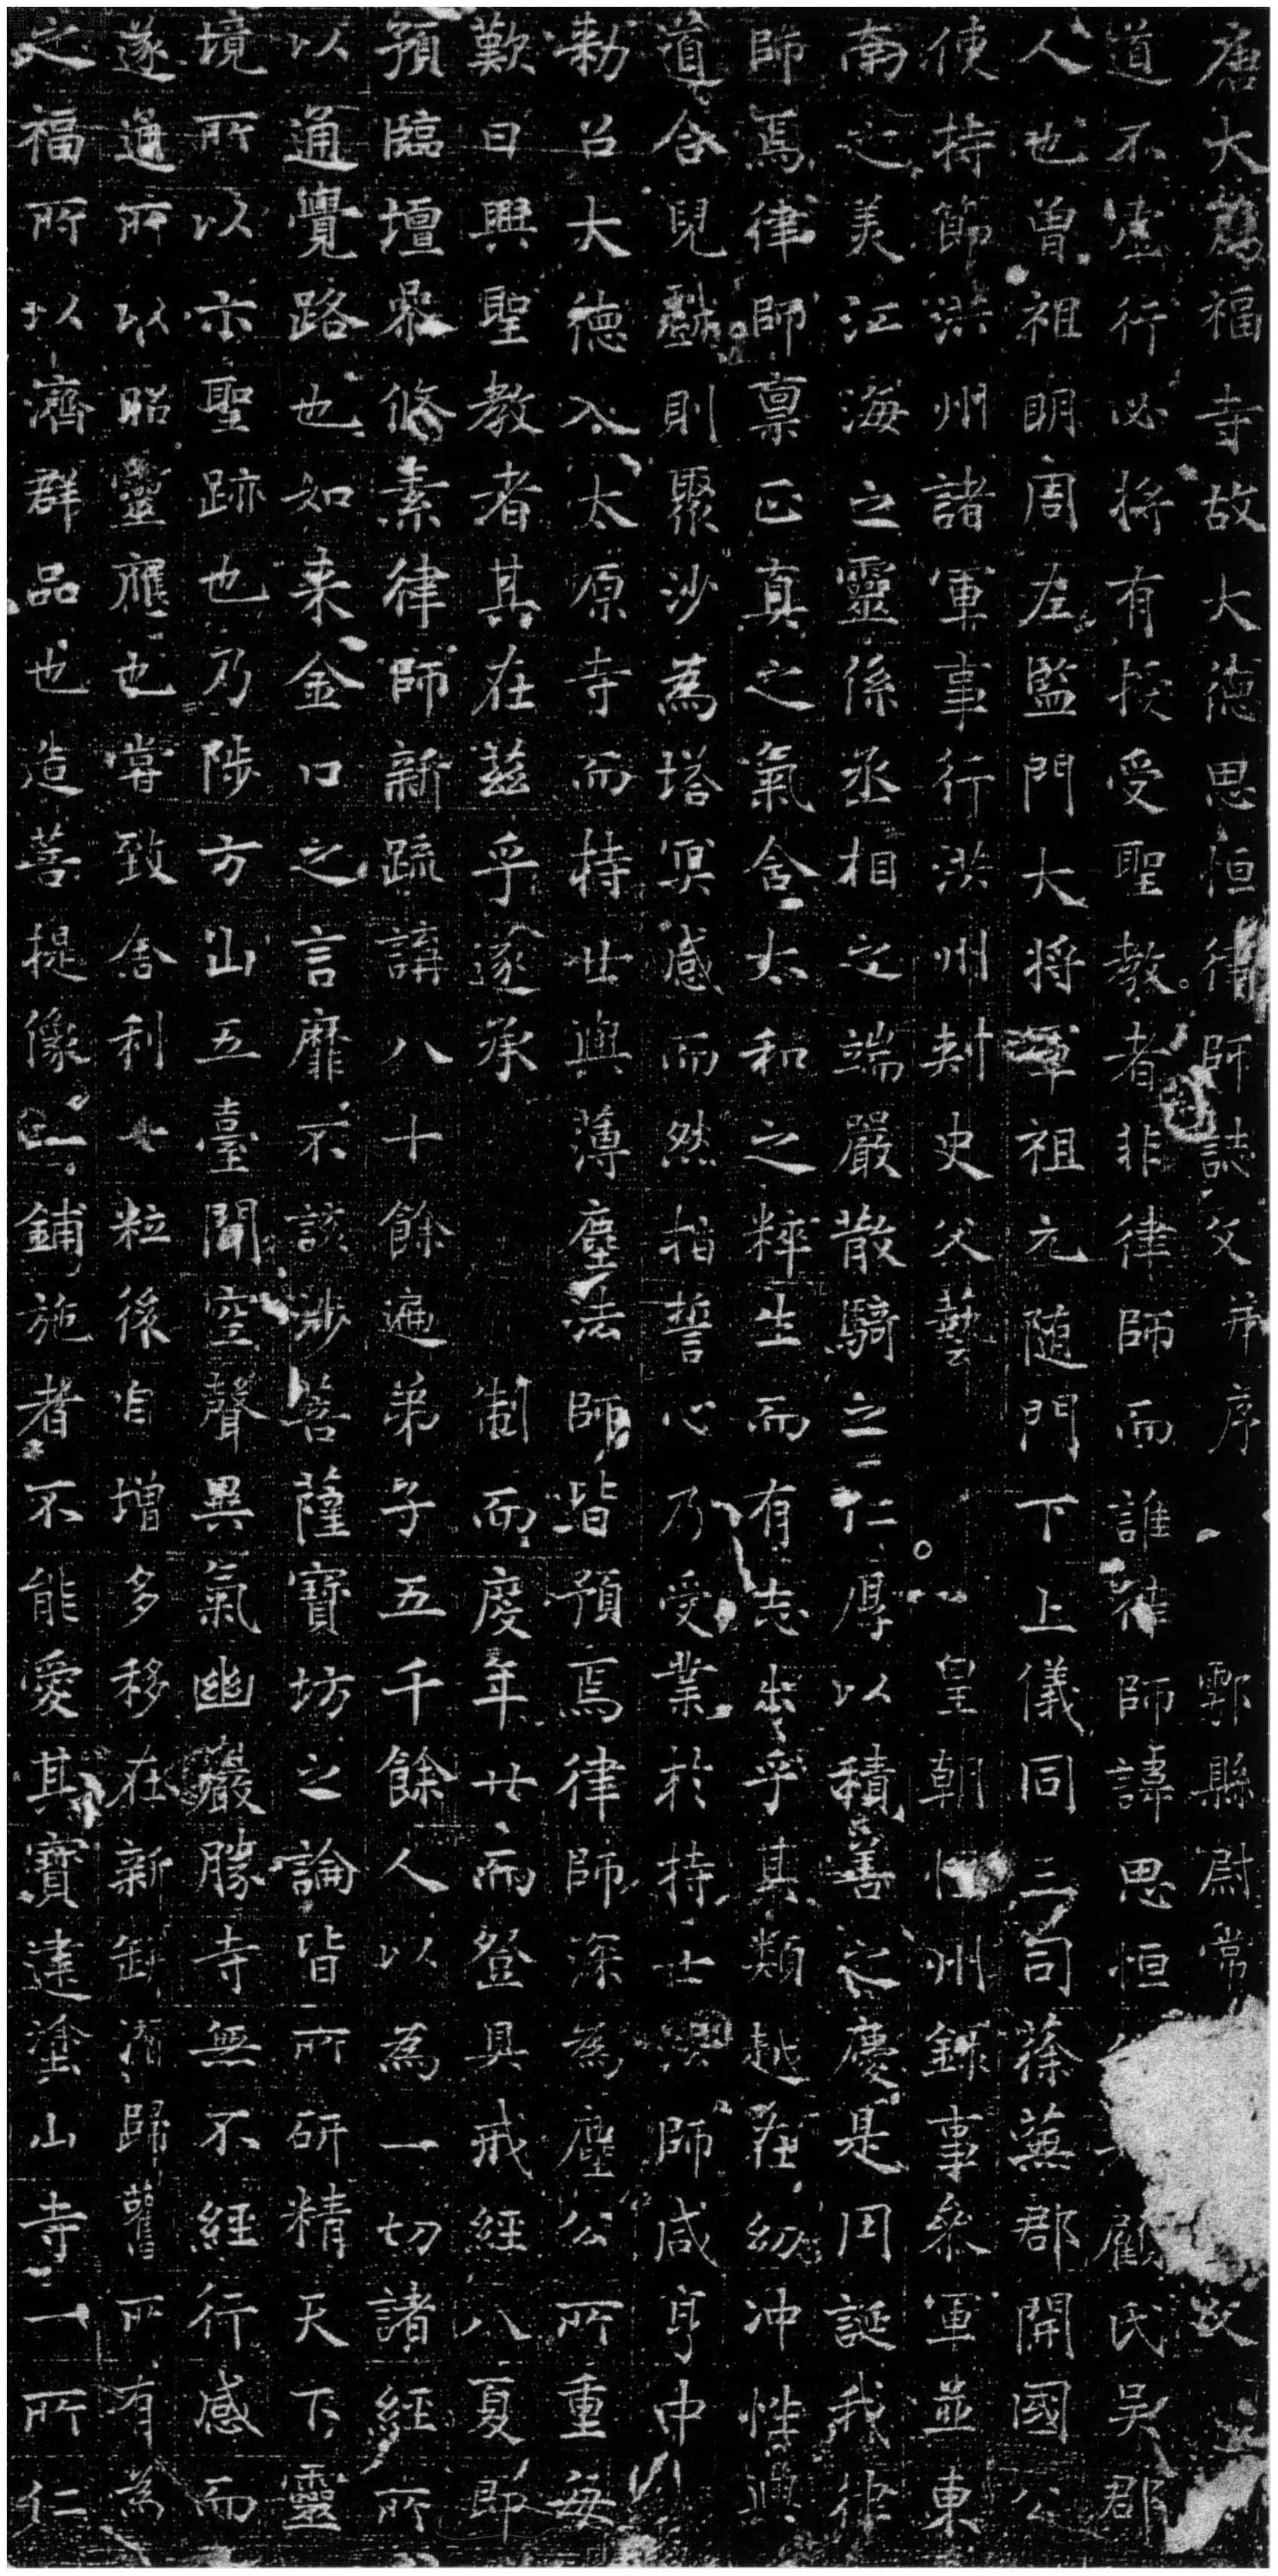 唐大薦福寺故大德思恒律師誌文并序 鄠縣尉常
道不虛行必將有授受聖教者非律師而誰律師諱思恒 顧氏吳郡
人也曾祖明周左監門大將軍祖元随門下上儀同三司蓨蕪郡開國公
使持節洪州諸軍事行洪州刾史父藝 皇朝恒州錄事叅軍並東
南之美江海之靈係丞相之端嚴散騎之仁厚以積善之慶是用誕我律
師焉律師禀正真之氣含太和之粹生而有志出乎其類越在幼冲性與
道合兒戱則聚沙為塔冥感而然指誓心乃受業於持世 師咸亨中
勑召大德入太原寺而持世與薄塵法師皆預焉律師深為塵公所重每
歎曰興聖教者其在茲乎遂承 制而度年廿而登具戒經八夏即
預臨壇叅修素律師新疏講八十餘遍弟子五千餘人以為一切諸經所
以通覺路也如来金口之言靡不該涉菩薩寶坊之論皆所研精天下靈
境所以示聖跡也乃陟方山五臺聞空聲異氣幽巖勝寺無不經行感而
遂通所以昭靈應也甞致舍利七粒後自增多移在新缾潛歸舊所有為
之福所以濟群品也造菩提像一鋪施者不能愛其寶建塗山寺一所仁